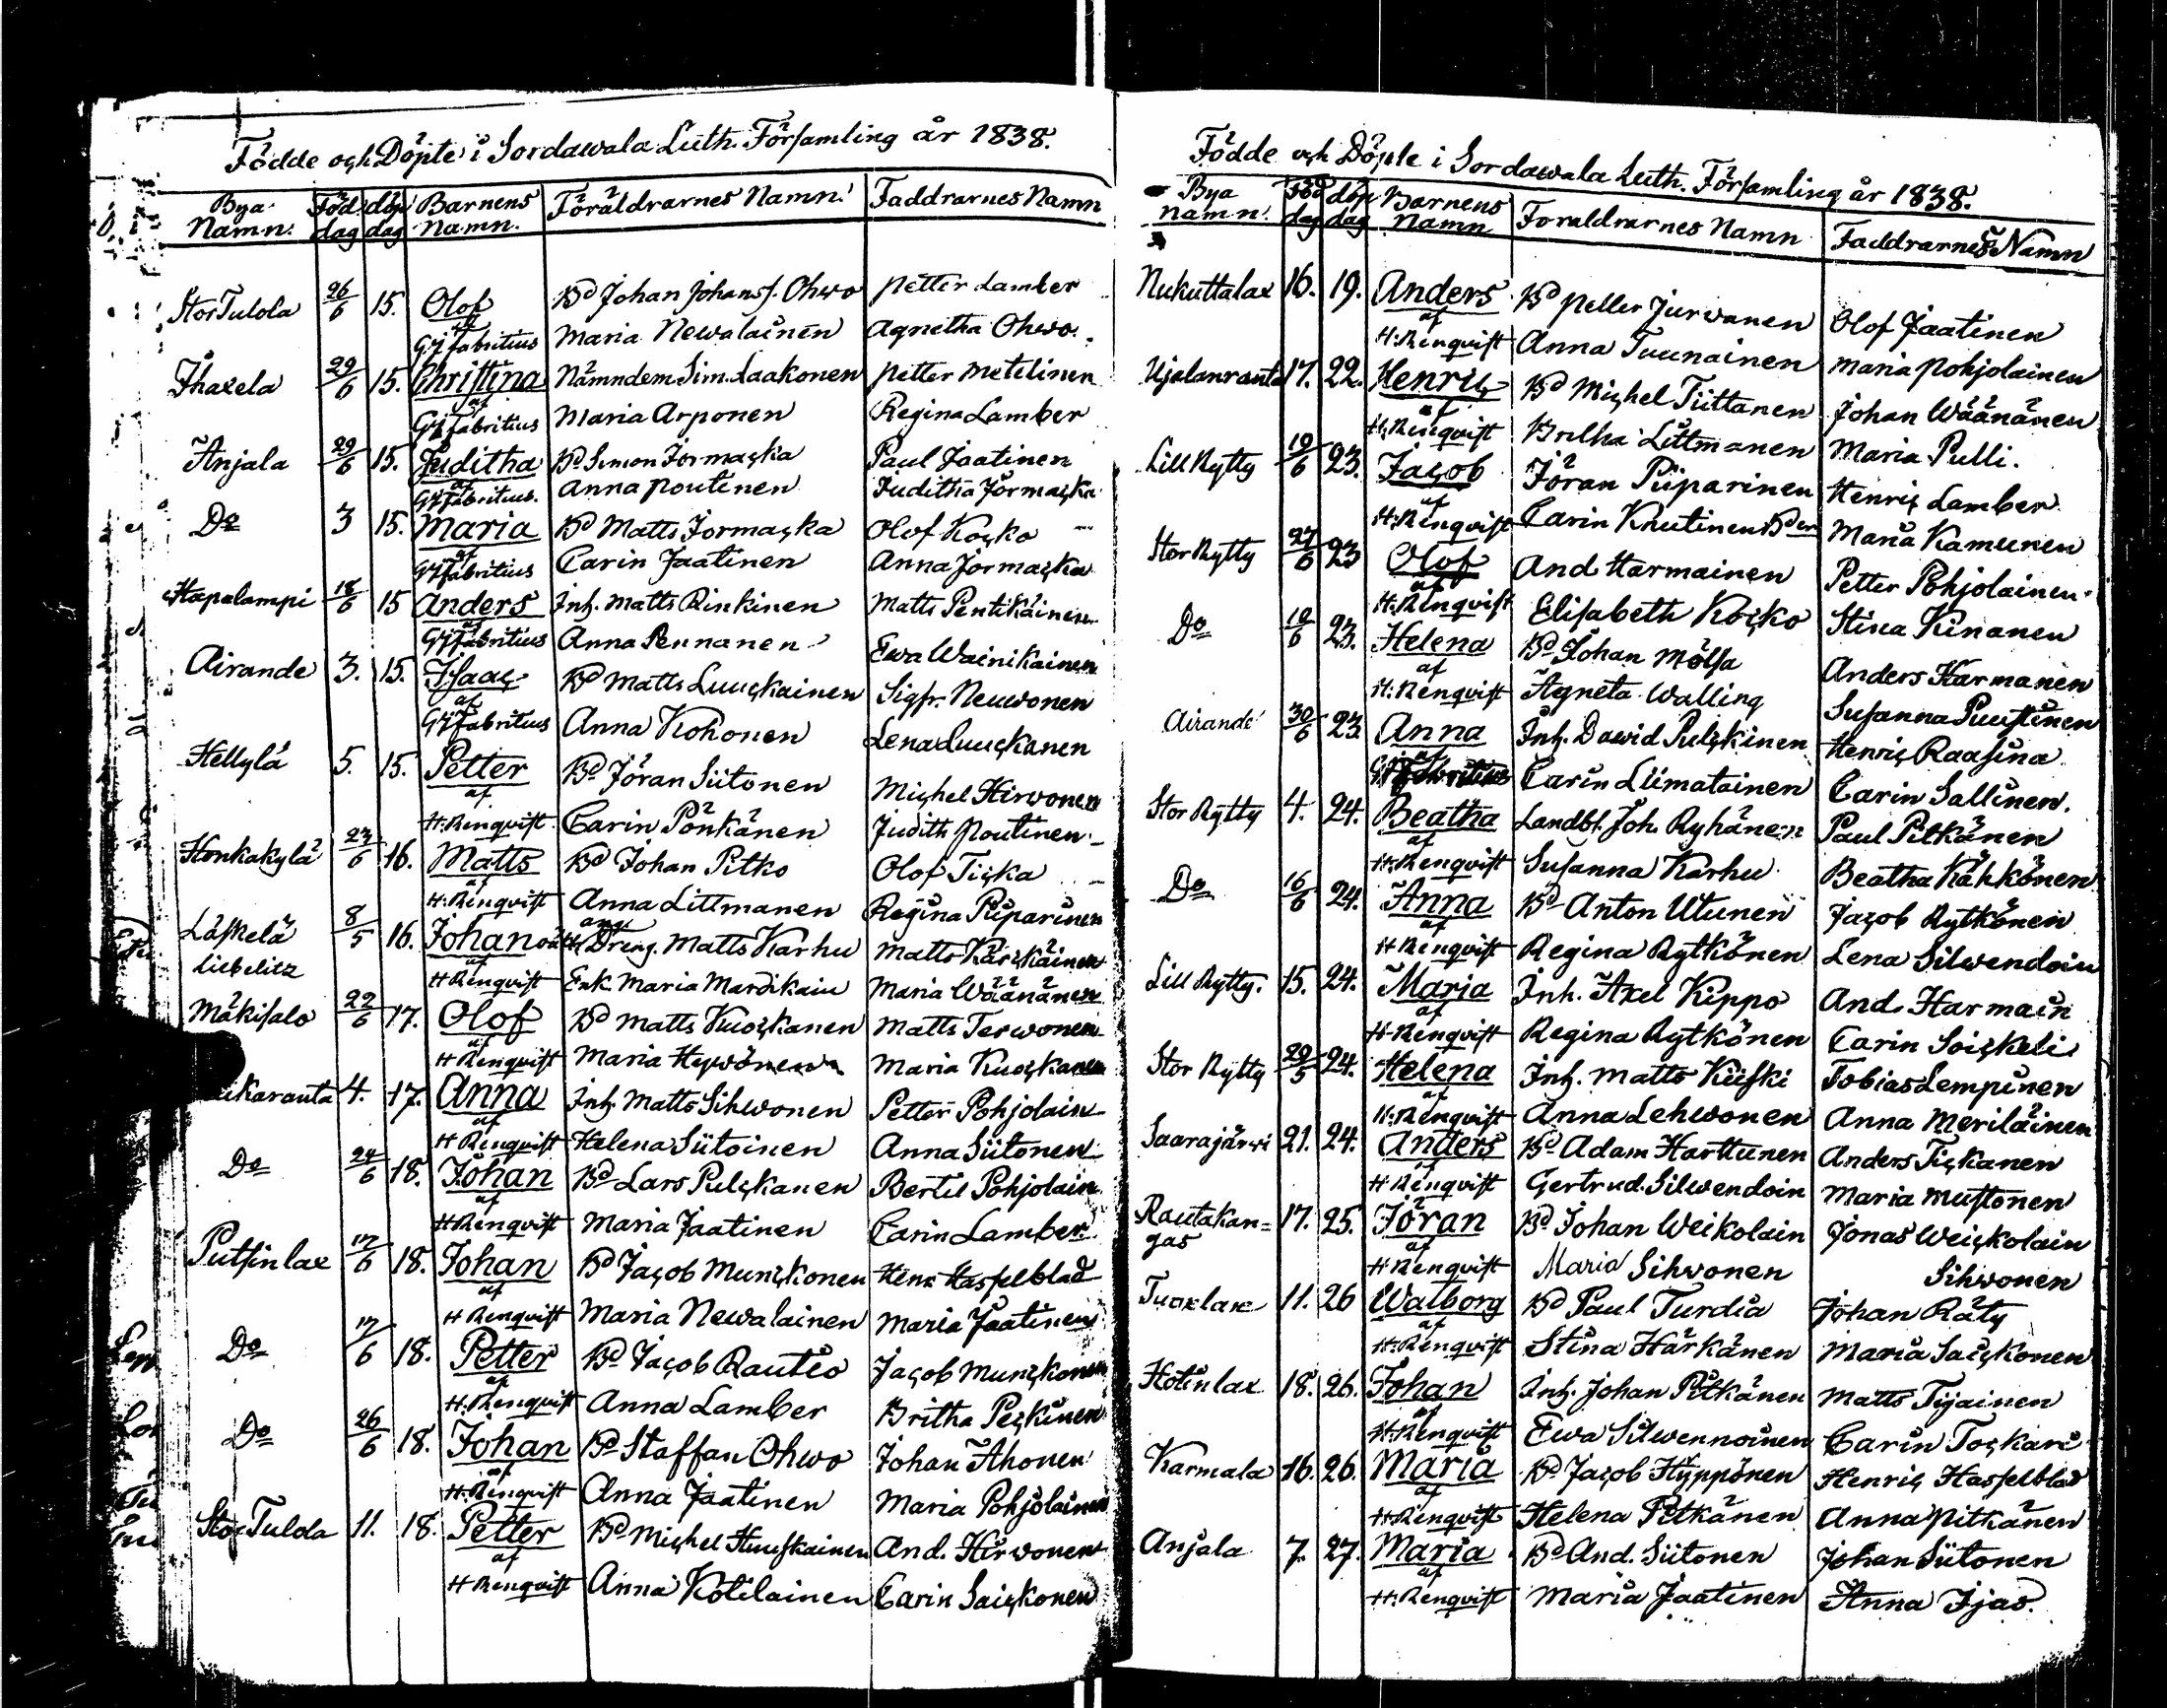 Födde och Döpte i Sordawala Luth. Församling år 1838.
Bya Namn. Föd dag döp dag Barnens Namn. Föräldrarnes Namn. Faddrarnes Namn
Stor Tulola 26/6 15. Olof Bd Johan Johansf. Ohwo Petter Lamber
af G:J Fabritius Maria Newalainen Agnetha Ohwo.
Ihaxela 29/6 15. Christina Nämndem Sim. Laakonen Petter Metelinen
af G:J Fabritius Maria Arponen Regina Lamber
Anjala 29/6 15. Juditha Bd Simon Jormacka Paul Jaatinen
af G:J Fabritius. Anna Poutinen Juditha Jormacka
Do 3 15. Maria Bd Matts Jormacka Olof Kocko
af G:J Fabritius Carin Jaatinen Anna Jormacka
Hapalampi 18/6 15 Anders Inh. Matts Rinkinen Matts Pentikäinen
af G:J Fabritius Anna Pennanen Ewa Wainikainen
Airande 3. 15. Isaac Bd Matts Luuckainen Sigfr. Neuwonen
af G:J Fabritius Anna Kohonen Lena Luuckanen
Hellylä 5. 15. Petter Bd Jöran Siitonen Michel Hirwonen
af H: Renqvist Carin Pönkänen Judith Poutinen
Honkakylä 23/6 16. Matts Bd Johan Pitko Olof Ticka
af H: Renqvist Anna Littmanen Regina Piiparinen
Läskelä 8/5 16. Johan Dreng. Matts Karhu Matts Kärckäinen
Liebelitz af H Renqvist Enk. Maria Mardikain Maria Wäänänen
Mäkisalo 22/6 17. Olof Bd Matts Kuockanen Matts Terwonen
af H Renqvist Maria Hypönen Maria Kuockanen
ikaranta 4. 17. Anna Inh. Matts Sihwonen Petter Pohjolain
af H Renqvist Helena Siitoinen Anna Siitonen
Do 24/6 18. Johan Bd Lars Pulckanen Bertil Pohjolain
af H Renqvist Maria Jaatinen Carin Lamber.
Putsinlax 17/6 18. Johan Bd Jacob Munckonen Henr Hasselblad
af H Renqvist Maria Newalainen Maria Jaatinen
Do 17/6 18. Petter Bd Jacob Rautio Jacob Munckonen
af H. Renqvist Anna Lamber Britha Peckinen
Do 26/6 18. Johan Bd Staffan Ohwo Johan Ahonen
af H. Renqvist Anna Jaatinen Maria Pohjolainen
Stor Tulola 11. 18. Petter Bd Michel Huuskainen And. Hirwonen
af H Renqvist Anna Kotilainen Carin Saickonen
Födde och Döpte i Sordawala Luth. Församling år 1838.
Bya namn. Föd dag döp dag Barnens Namn Foraldrarnes Namn Faddrarnes Namn
Nukuttalax 16. 19. Anders Bd Petter Jurwanen Olof Jaatinen
af H: Renqvist Anna Tuunainen Maria Pohjolainen
Ujalanranta 17. 22. Henric Bd Michel Tiittanen Johan Wäänänen
af H. Renqvist Britha Littmanen Maria Pulli.
Lill Rytty 19/6 23. Jacob Jöran Piiparinen Henric Lamber
af H: Renqvist Carin Knutinen Maria Kamunen
Stor Rytty 27/6 23 Olof And Harmainen Petter Pohjolainen
af H: Renqvist Elisabeth Kocko Stina Kinanen
Do 19/6 23. Helena Bd Johan Mölsa Anders Harmanen
af H: Renqvist Agneta Walling Susanna Puustinen
Airande 30/6 23 Anna Inh. Dawid Pulckinen Henric Raasina
af G:J Fabritius Carin Liimatainen Carin Sallinen.
Stor Rytty 4. 24. Beatha Landbl. Joh. Ryhänen Paul Pitkänen
af H: Renqvist Susanna Karhu Beatha Kähkönen
Do 16/6 24. Anna Bd Anton Utunen Jacob Rytkönen
af H Renqvist Regina Rytkönen Lena Silwendoin
Lill Rytty. 15. 24. Maria Inh. Axel Kippo And. Harmain
af H-Renqvist Regina Rytkönen Carin Soickeli
Stor Rytty 29/5 24. Helena Inh. Matts Kiiski Tobias Lempinen
af H: Renqvist Anna Lehwonen Anna Meriläinen
Saarajärwi 21. 24. Anders Bd Adam Harttunen Anders Tickanen
af H Renqvist Gertrud. Silwendoin Maria Mustonen
Rautakan= 17. 25. Jöran Bd Johan Weikolain Jonas Weickolain
gas af H Renqvist Maria Sihwonen Sihwonen
Tuoxlax 11. 26 Walborg Bd Paul Turdia Johan Räty
af H: Renqvist Stina Härkänen Maria Saickonen
Hotinlax 18. 26. Johan Inh. Johan Pitkänen Matts Tijainen
af H: Renqvist Ewa Silwennoinen Carin Tockari
Karmala 16. 26. Maria Bd Jacob Hyppönen Henric Hasselblad
af H: Renqvist Helena Pitkänen Anna Pitkänen
Anjala 7. 27. Maria Bd And. Siitonen Johan Siitonen
af H: Renqvist Maria Jaatinen Anna Ijas.